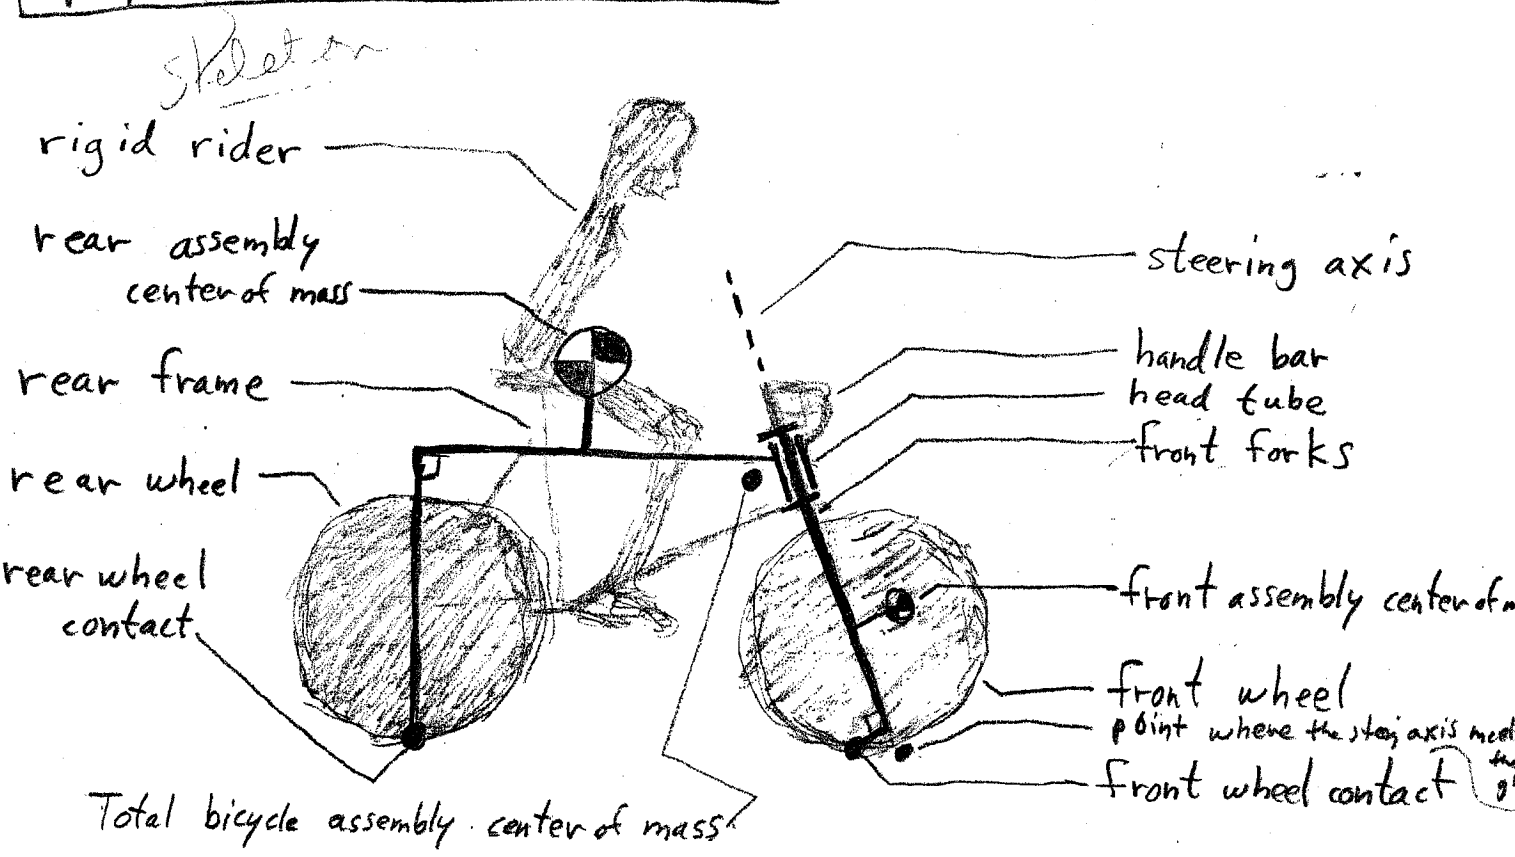 skeleton
rigid rider
rear assembly
center of mass
rear frame
rear wheel
rear wheel
contact
Total bicycle assembly center of mass
steering axis
handle bar
head tube
front forks
front assembly center of m
front wheel
point where the steng axis meet
the
front wheel contact